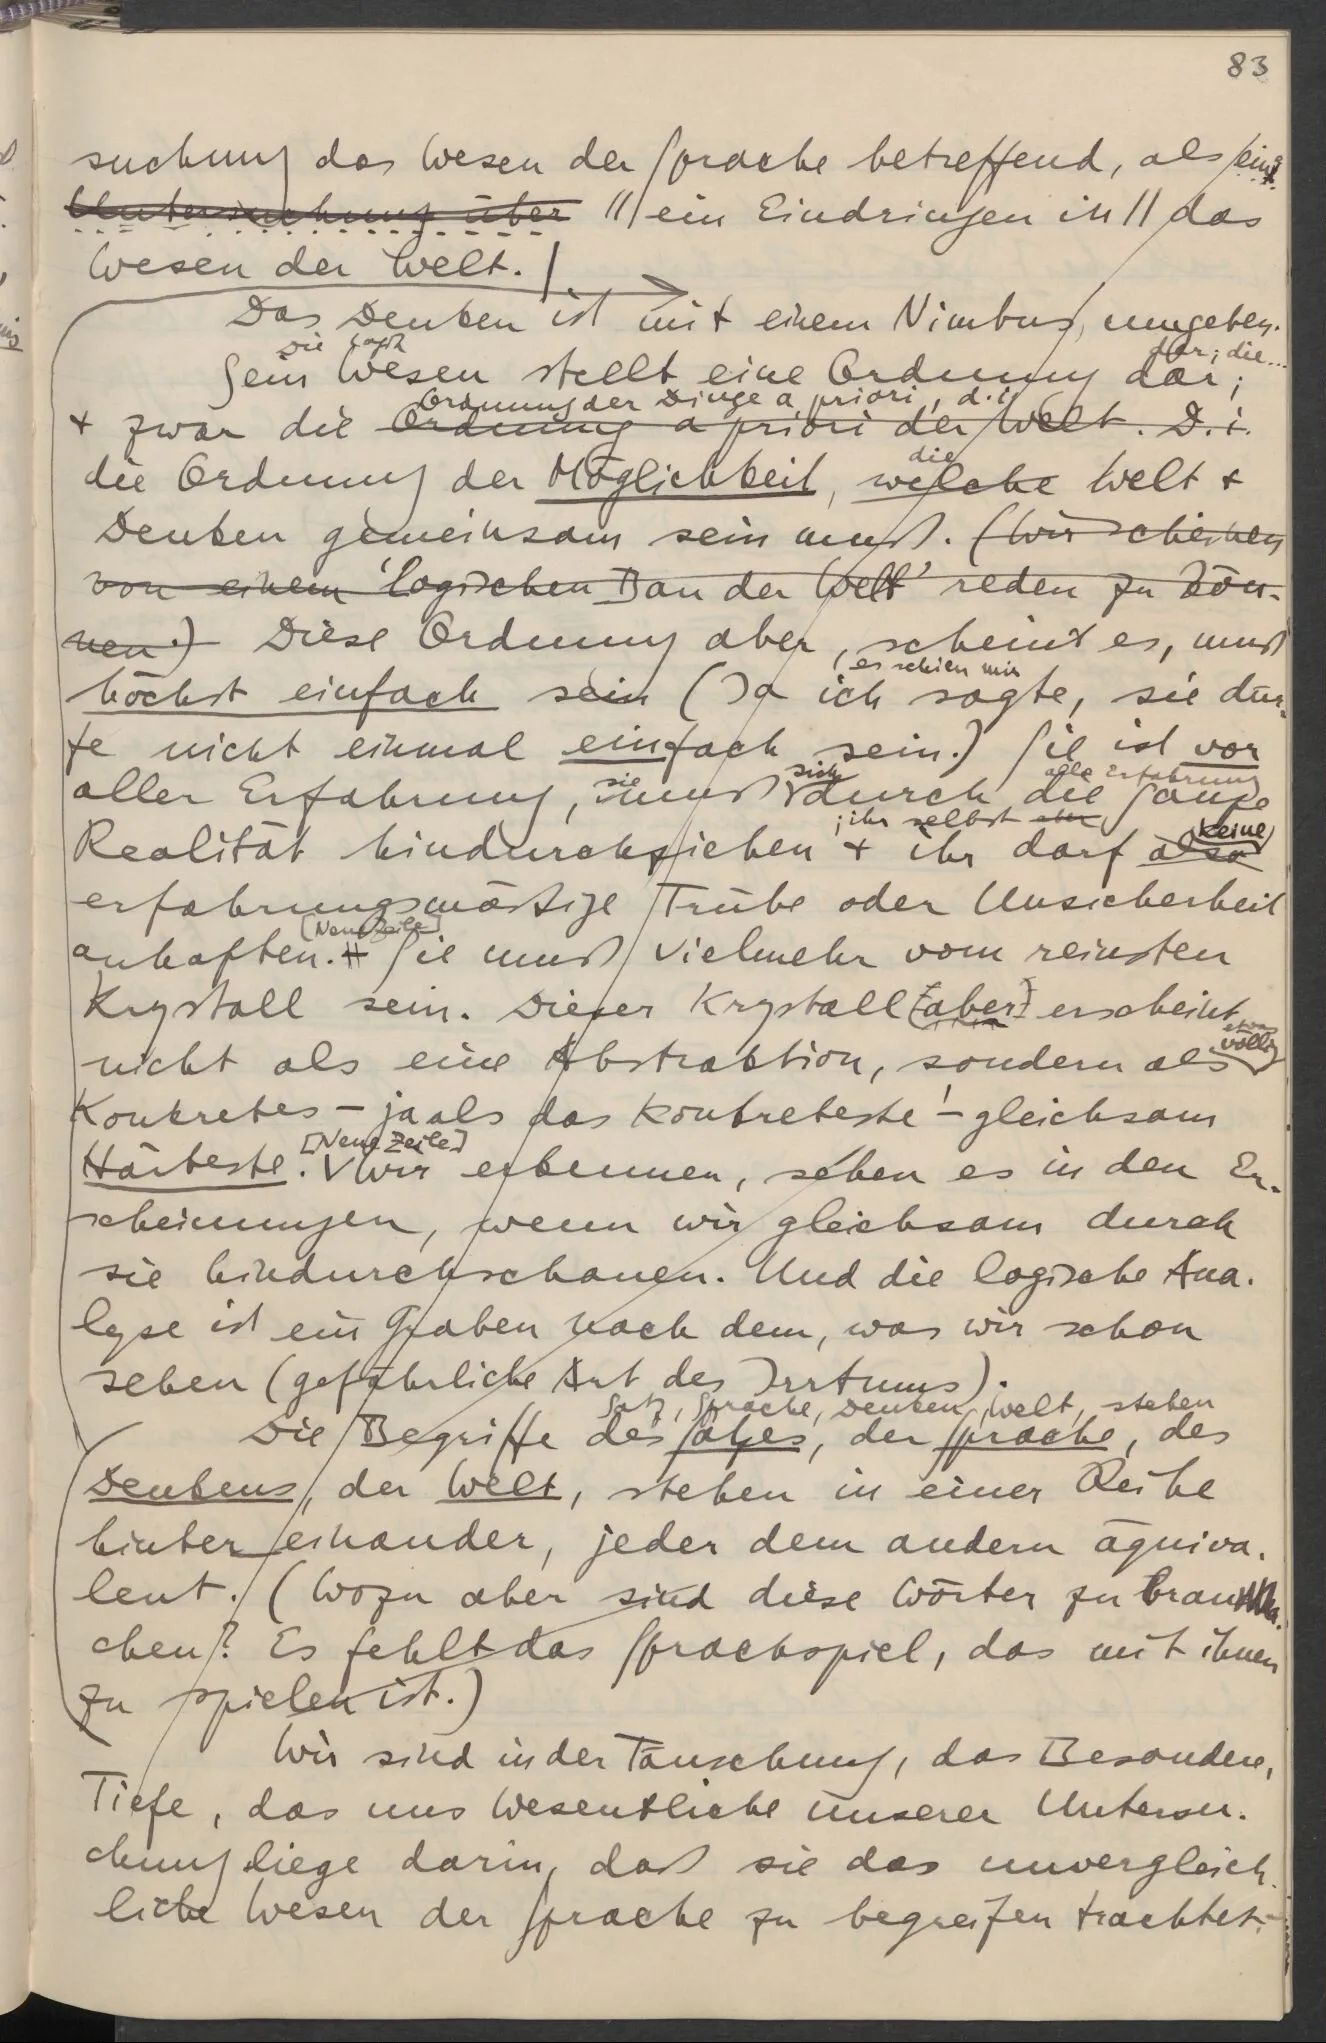 83
suchung das Wesen der Sprache betreffend, als eine
Untersuchung über // ein Eindringen in // das
Wesen der Welt. /
Das Denken ist mit einem Nimbus umgeben.
Die Logik dar; die...
Sein Wesen stellt eine Ordnung dar;
Ordnung der Dinge a priori, d.i.
+ zwar die Ordnung a priori der Welt. D.i.
die
die Ordnung der Möglichkeit, welche Welt +
Denken gemeinsam sein muß. (Wir scheinen
von einem 'logischen Bau der Welt' reden zu kön-
nen.) Diese Ordnung aber, scheint es, muß
(es schien mir
höchst einfach sein (Ja ich sagte, sie dür-
fe nicht einmal einfach sein.) Sie ist vor
sie sich alle Erfahrung
aller Erfahrung, muß durch die ganze
; ihr selbst aber keine
Realität hindurchziehen + ihr darf also
erfahrungsmäßige Trübe oder Unsicherheit
[Neue Zeile]
anhaften. + Sie muß vielmehr vom reinsten
Krystall sein. Dieser Krystall [aber] erscheint
etwas völlig
nicht als eine Abstraktion, sondern als
Konkretes – ja als das Konkreteste – gleichsam
[Neue Zeile]
Härteste. Wir erkennen, sehen es in den Er-
scheinungen, wenn wir gleichsam durch
sie hindurchschauen. Und die logische Ana-
lyse ist ein Graben nach dem, was wir schon
sehen (gefährliche Art des Irrtums).
Satz, Sprache, Denken, Welt, stehen
Die Begriffe des Satzes, der Sprache, des
Denkens, der Welt, stehen in einer Reihe
hintereinander, jeder dem andern äquiva-
lent. (Wozu aber sind diese Wörter zu brau-
chen? Es fehlt das Sprachspiel, das mit ihnen
zu spielen ist.)
Wir sind in der Täuschung, das Besondere,
Tiefe, das uns Wesentliche unserer Untersu-
chung liege darin, daß sie das unvergleich-
liche Wesen der Sprache zu begreifen trachtet.